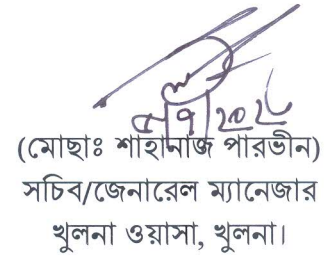 (মোছাঃ শাহানাজ পারভীন)
সচিব/জেনারেল ম্যানেজার
খুলনা ওয়াসা, খুলনা।